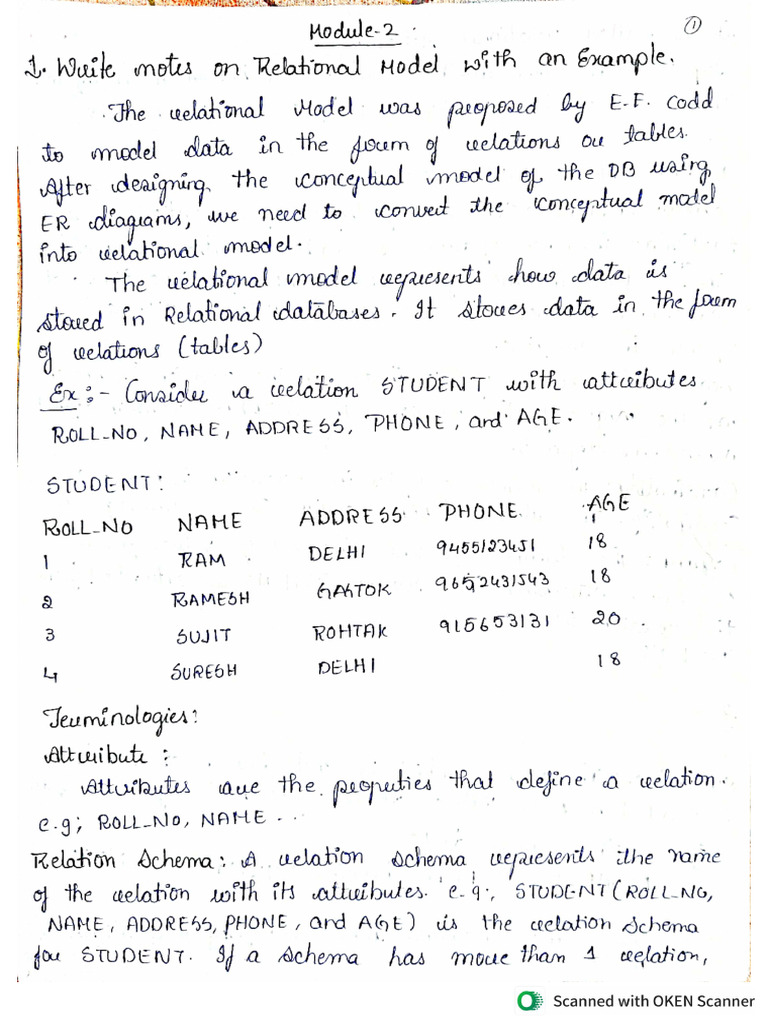 Module-2
1
1. Write notes on Relational Model with an Example.
The relational Model was proposed by E.F. Codd
to model data in the form of relations or tables.
After designing the conceptual model of the DB using
ER diagrams, we need to convert the conceptual model
into relational model.
The relational model represents how data is
stored in Relational databases. It stores data in the form
of relations (tables)
Ex:- Consider a relation STUDENT with attributes
ROLL-NO, NAME, ADDRESS, PHONE, and AGE.
STUDENT:
ROLL-NO NAME ADDRESS PHONE AGE
1 RAM DELHI 9455123451 18
2 RAMESH GAGTOK 9652431543 18
3 SUJIT ROHTAK 915653131 20
4 SURESH DELHI 18
Terminologies:
Attribute:
Attributes are the properties that define a relation.
e.g; ROLL-NO, NAME..
Relation Schema: A relation schema represents the name
of the relation with its attributes. e.g., STUDENT (ROLL-NO,
NAME, ADDRESS, PHONE, and AGE) is the relation schema
for STUDENT. If a schema has more than 1 relation,
Scanned with OKEN Scanner